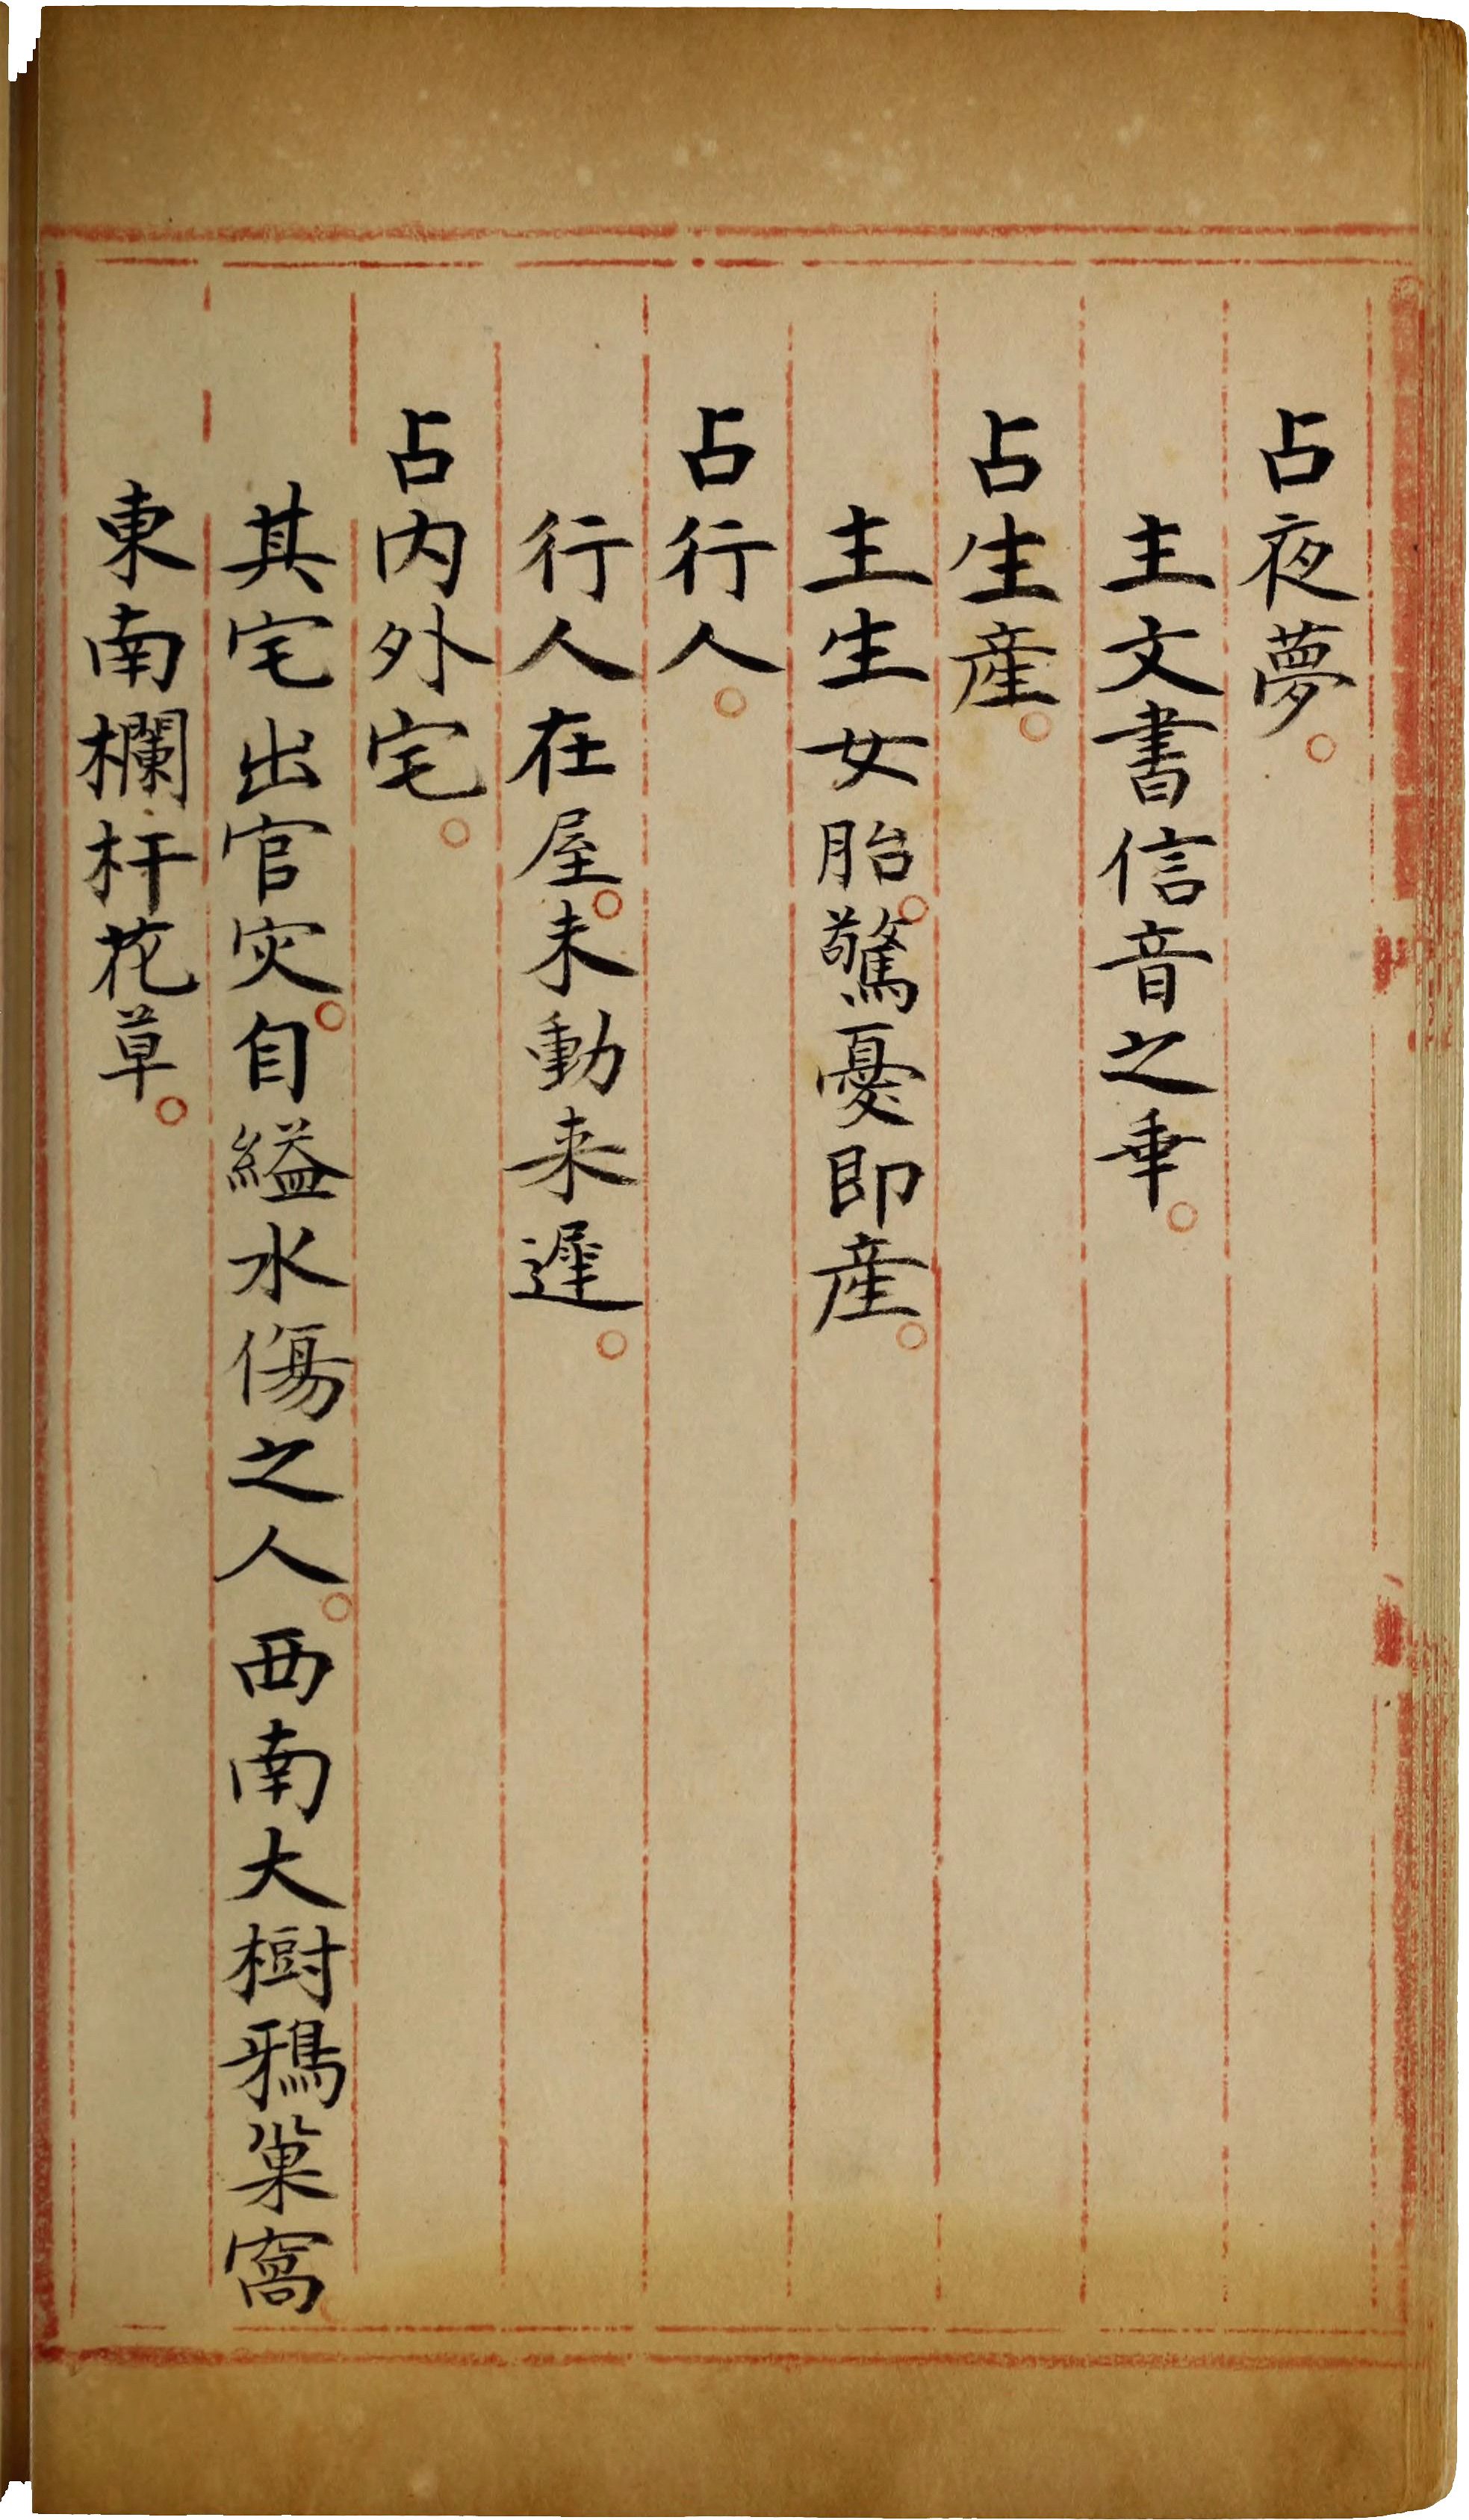 占夜夢。
主文書信音之事。
占生產。
主生女胎。驚憂即產。
占行人。
行人在屋。未動来遲。
占内外宅。
其宅出官灾。自縊水傷之人。西南大樹鴉巢窩
東南欄杆花草。